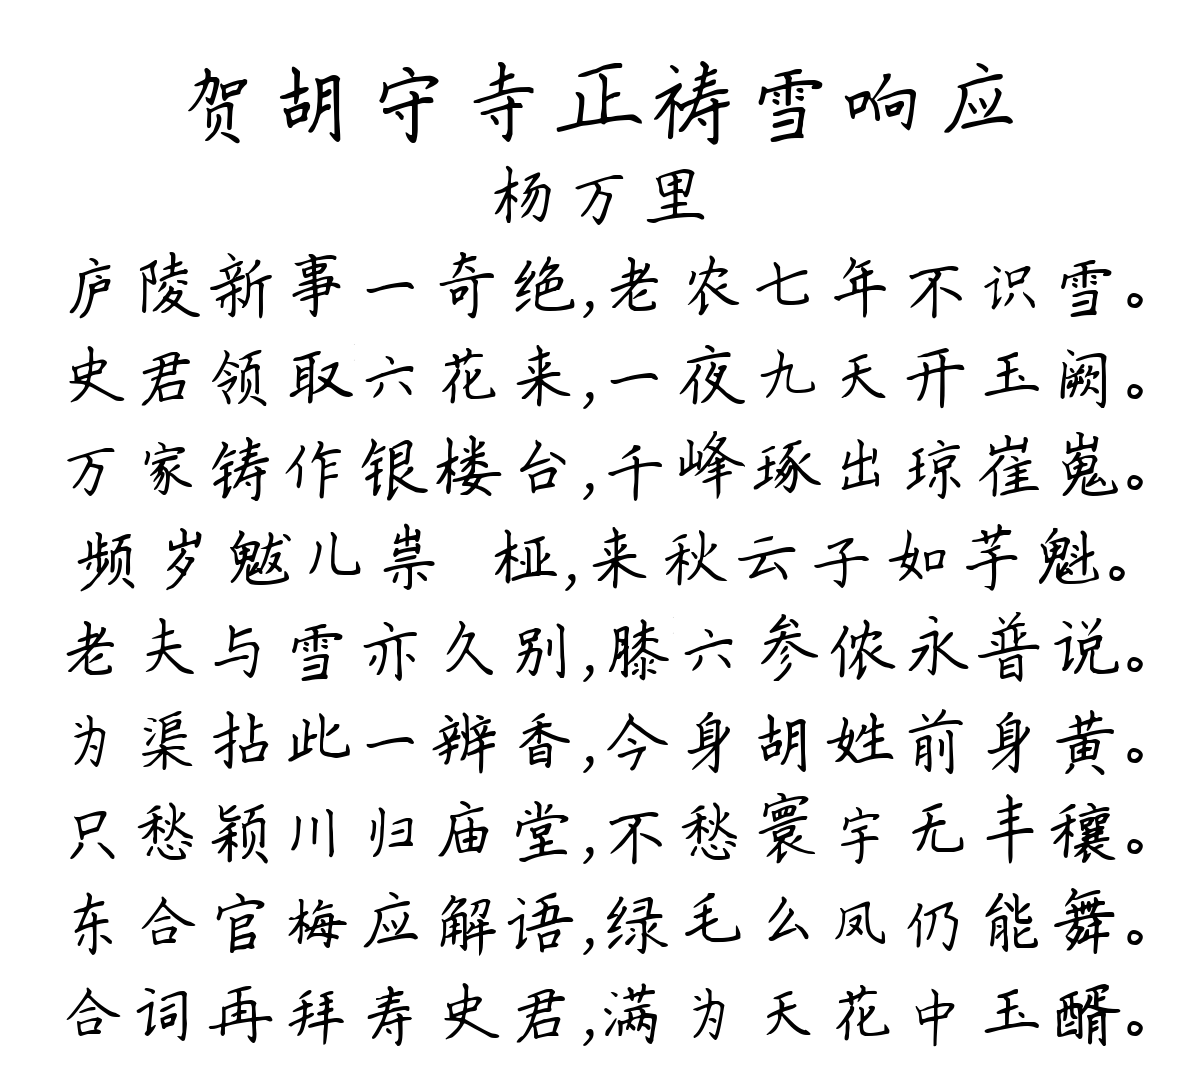 贺胡守寺正祷雪响应
杨万里
庐陵新事一奇绝,老农七年不识雪。
史君领取六花来,一夜九天开玉阙。
万家铸作银楼台,千峰琢出琼崔嵬。
频岁魃儿祟 桠,来秋云子如芋魁。
老夫与雪亦久别,膝六参侬永普说。
为渠拈此一辨香,今身胡姓前身黄。
只愁颍川归庙堂,不愁寰宇无丰穰。
东合官梅应解语,绿毛么凤仍能舞。
合词再拜寿史君,满为天花中玉醑。